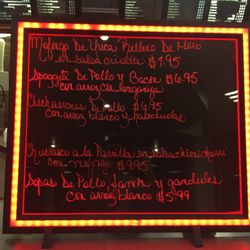 Mofongo De Yuca Relleno De Maso
en salsa criolla $7.95
Spagetti De Pollo y Bacon $6.95
con arroz con longaniza
Chicharrones Pollo $6.95
con arroz blanco y habichuelas
Churrasco a la Parrilla en salsa chimichurri
con mofongo $9.95
Sopas De Pollo, Sancho y gandules
con arroz blanco $5.99